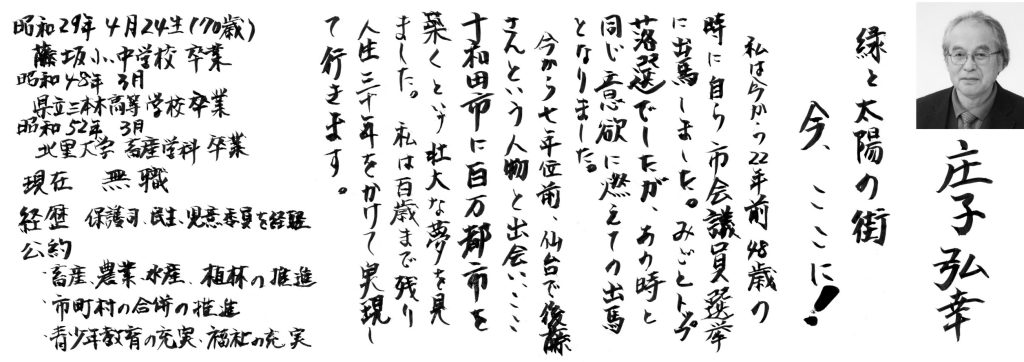 庄子弘幸
緑と太陽の街
今、ここに!
私は今から22年前48歳の
時に自ら市会議員選挙
に出馬しました。みごとトップ
落選でしたが、あの時と
同じ意欲に燃えての出馬
となりました。
今から七年位前、仙台で後藤
さんという人物と出会い、ここ
十和田市に百万都市を
築くという壮大な夢を見
ました。私は百歳まで残り
人生三十年をかけて実現し
て行きます。
昭和29年4月24生(70歳)
藤坂小、中学校卒業
昭和48年3月
県立三本木高等学校卒業
昭和52年3月
北里大学畜産学科卒業
現在 無職
経歴 保護司、民生、児童委員を経験
公約
・畜産、農業、水産、植林の推進
・市町村の合併の推進
・青少年教育の充実、福祉の充実